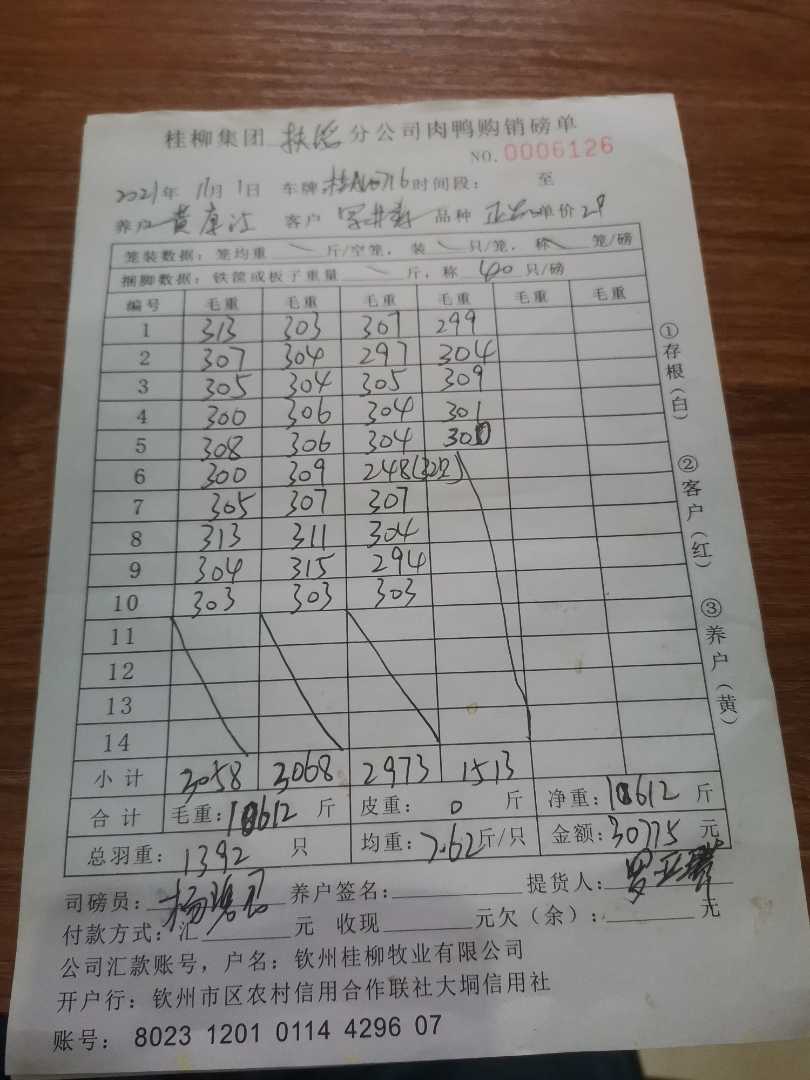 桂柳集团 扶滔 分公司肉鸭购销磅单
NO. 0006126
2021年 11月 1日 车牌 时间段： 至
养户 黄 客户 品种 正品 单价 2.9
笼装数据：笼均重 斤/空笼，装 只/笼，称 笼/磅
捆脚数据：铁筐或板子重量 斤，称 40 只/磅
编号 毛重 毛重 毛重 毛重 毛重 毛重
1 313 303 307 299
2 307 304 297 304
3 305 304 305 309
4 300 306 304 301
5 308 306 304 300
6 300 309 248(32只)
7 305 307 307
8 313 311 304
9 304 315 294
10 303 303 303
11
12
13
14
小计 3058 3068 2973 1513
合计 毛重：10612 斤 皮重：0 斤 净重：10612 斤
总羽重：1392 只 均重：7.62斤/只 金额：30775 元
司磅员： 杨 养户签名： 提货人： 罗
付款方式：汇 元 收现 元欠（余）： 元
公司汇款账号，户名：钦州桂柳牧业有限公司
开户行：钦州市区农村信用合作联社大垌信用社
账号： 8023 1201 0114 4296 07
①存根（白）
②客户（红）
③养户（黄）